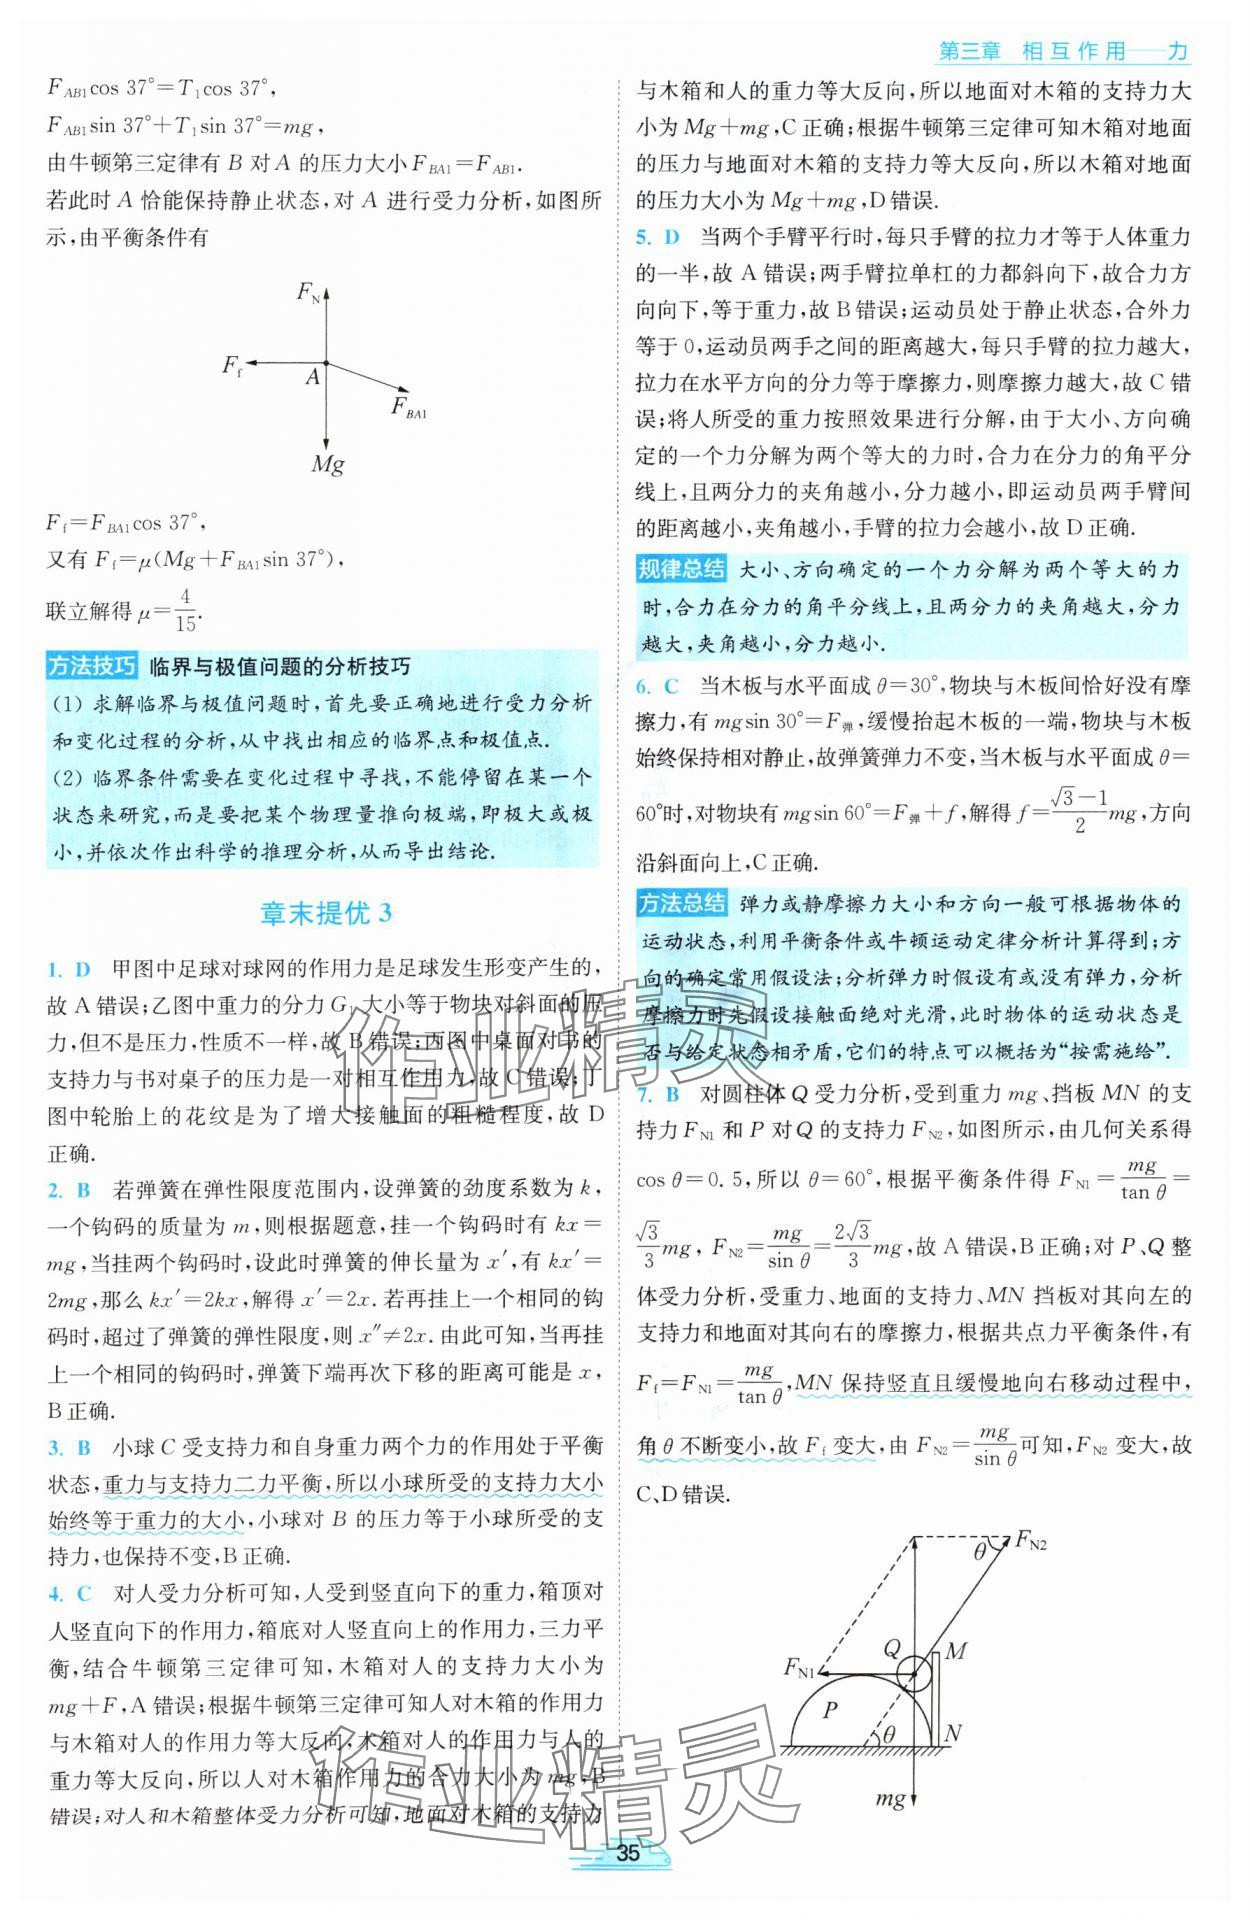 第三章 相互作用——力
F_{AB1}cos 37°=T_1cos 37°,
F_{AB1}sin 37°+T_1sin 37°=mg,
由牛顿第三定律有 B 对 A 的压力大小 F_{BA1}=F_{AB1}.
若此时 A 恰能保持静止状态,对 A 进行受力分析,如图所
示,由平衡条件有
F_N
F_f
A
F_{BA1}
Mg
F_f=F_{BA1}cos 37°,
又有 F_f=μ(Mg+F_{BA1}sin 37°),
联立解得 μ=4/15.
方法技巧 临界与极值问题的分析技巧
(1) 求解临界与极值问题时,首先要正确地进行受力分析
和变化过程的分析,从中找出相应的临界点和极值点.
(2) 临界条件需要在变化过程中寻找,不能停留在某一个
状态来研究,而是要把某个物理量推向极端,即极大或极
小,并依次作出科学的推理分析,从而导出结论.
章末提优 3
1. D 甲图中足球对球网的作用力是足球发生形变产生的,
故 A 错误;乙图中重力的分力 G_1 大小等于物块对斜面的压
力,但不是压力,性质不一样,故 B 错误;丙图中桌面对书的
支持力与书对桌子的压力是一对相互作用力,故 C 错误;丁
图中轮胎上的花纹是为了增大接触面的粗糙程度,故 D
正确.
2. B 若弹簧在弹性限度范围内,设弹簧的劲度系数为 k,
一个钩码的质量为 m,则根据题意,挂一个钩码时有 kx=
mg,当挂两个钩码时,设此时弹簧的伸长量为 x′,有 kx′=
2mg,那么 kx′=2kx,解得 x′=2x.若再挂上一个相同的钩
码时,超过了弹簧的弹性限度,则 x″≠2x.由此可知,当再挂
上一个相同的钩码时,弹簧下端再次下移的距离可能是 x,
B 正确.
3. B 小球 C 受支持力和自身重力两个力的作用处于平衡
状态,重力与支持力二力平衡,所以小球所受的支持力大小
始终等于重力的大小,小球对 B 的压力等于小球所受的支
持力,也保持不变,B 正确.
4. C 对人受力分析可知,人受到竖直向下的重力,箱顶对
人竖直向下的作用力,箱底对人竖直向上的作用力,三力平
衡,结合牛顿第三定律可知,木箱对人的支持力大小为
mg+F,A 错误;根据牛顿第三定律可知人对木箱的作用力
与木箱对人的作用力等大反向,木箱对人的作用力与人的
重力等大反向,所以人对木箱作用力的合力大小为 mg,B
错误;对人和木箱整体受力分析可知,地面对木箱的支持力
与木箱和人的重力等大反向,所以地面对木箱的支持力大
小为 Mg+mg,C 正确;根据牛顿第三定律可知木箱对地面
的压力与地面对木箱的支持力等大反向,所以木箱对地面
的压力大小为 Mg+mg,D 错误.
5. D 当两个手臂平行时,每只手臂的拉力才等于人体重力
的一半,故 A 错误;两手臂拉单杠的力都斜向下,故合力方
向向下,等于重力,故 B 错误;运动员处于静止状态,合外力
等于 0,运动员两手之间的距离越大,每只手臂的拉力越大,
拉力在水平方向的分力等于摩擦力,则摩擦力越大,故 C 错
误;将人所受的重力按照效果进行分解,由于大小、方向确
定的一个力分解为两个等大的力时,合力在分力的角平分
线上,且两分力的夹角越小,分力越小,即运动员两手臂间
的距离越小,夹角越小,手臂的拉力会越小,故 D 正确.
规律总结 大小、方向确定的一个力分解为两个等大的力
时,合力在分力的角平分线上,且两分力的夹角越大,分力
越大,夹角越小,分力越小.
6. C 当木板与水平面成 θ=30°,物块与木板间恰好没有摩
擦力,有 mgsin 30°=F_弹,缓慢抬起木板的一端,物块与木板
始终保持相对静止,故弹簧弹力不变,当木板与水平面成 θ=
60°时,对物块有 mgsin 60°=F_弹+f,解得 f=(√3-1)/2 mg,方向
沿斜面向上,C 正确.
方法总结 弹力或静摩擦力大小和方向一般可根据物体的
运动状态,利用平衡条件或牛顿运动定律分析计算得到;方
向的确定常用假设法;分析弹力时假设有或没有弹力,分析
摩擦力时先假设接触面绝对光滑,此时物体的运动状态是
否与给定状态相矛盾,它们的特点可以概括为“按需施给”.
7. B 对圆柱体 Q 受力分析,受到重力 mg、挡板 MN 的支
持力 F_{N1} 和 P 对 Q 的支持力 F_{N2},如图所示,由几何关系得
cos θ=0.5,所以 θ=60°,根据平衡条件得 F_{N1}=mg/tan θ=
√3/3 mg, F_{N2}=mg/sin θ=2√3/3 mg,故 A 错误,B 正确;对 P、Q 整
体受力分析,受重力、地面的支持力、MN 挡板对其向左的
支持力和地面对其向右的摩擦力,根据共点力平衡条件,有
F_f=F_{N1}=mg/tan θ,MN 保持竖直且缓慢地向右移动过程中,
角 θ 不断变小,故 F_f 变大,由 F_{N2}=mg/sin θ可知,F_{N2} 变大,故
C、D 错误.
θ
F_{N2}
Q
M
F_{N1}
P
θ
N
mg
35
作业精灵
作业精灵